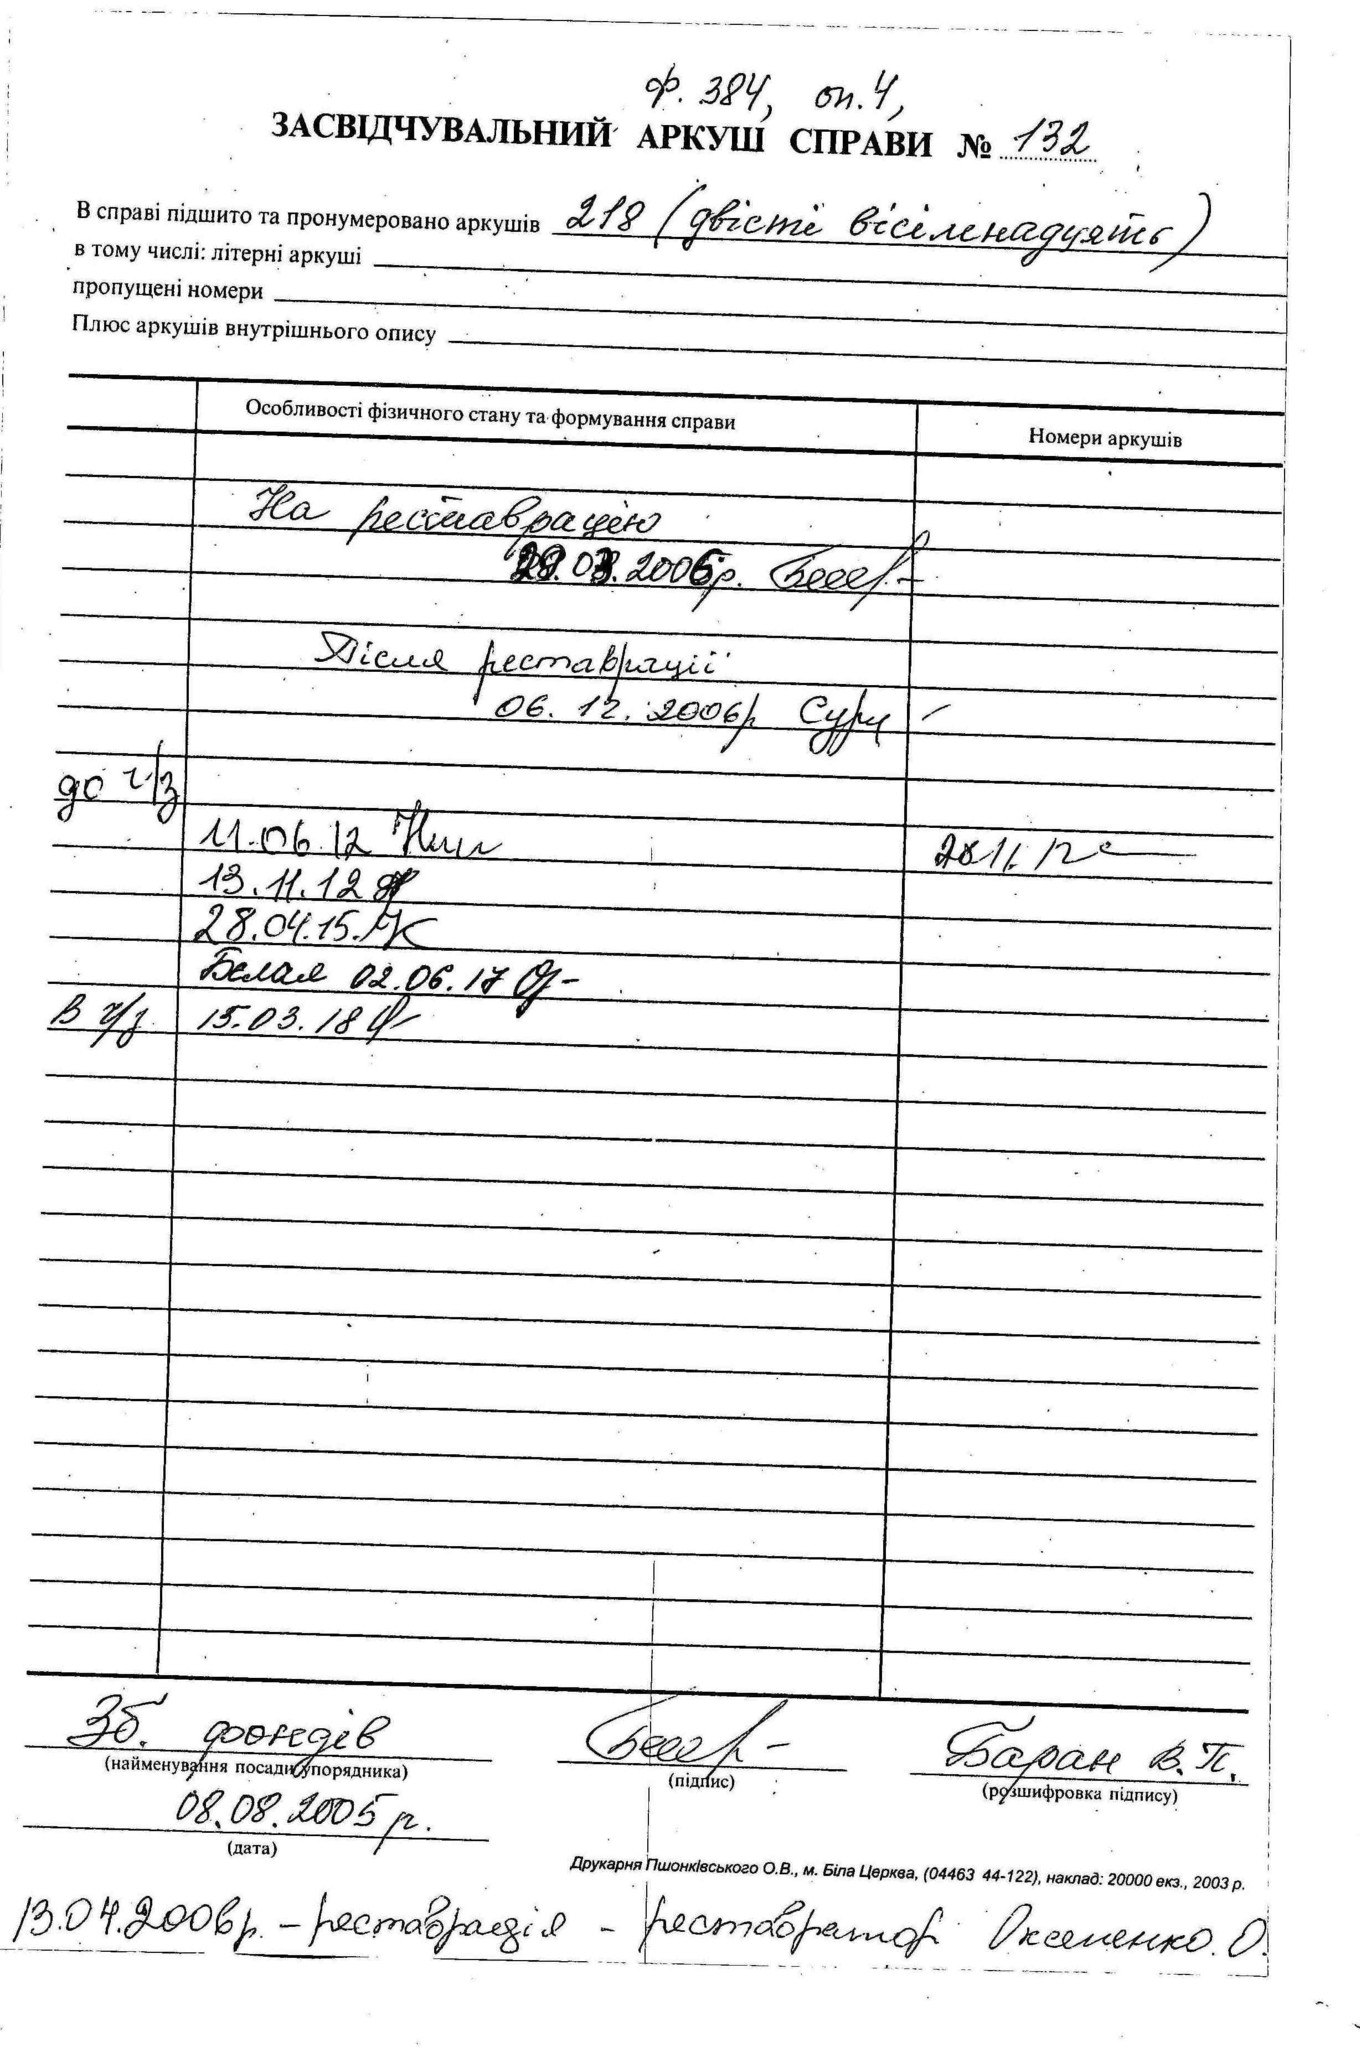 ф. 384, оп. 4,
ЗАСВІДЧУВАЛЬНИЙ АРКУШ СПРАВИ № 132
В справі підшито та пронумеровано аркушів 218 (двісті вісімнадцять)
в тому числі: літерні аркуші
пропущені номери
Плюс аркушів внутрішнього опису
Особливості фізичного стану та формування справи
Номери аркушів
На реставрацію
.03.2006р.
Після реставрації
06.12.2006р
до ч/з
11.06.12
13.11.12
28.04.15.
Белая 02.06.17
В ч/з 15.03.18
Зб. фондів
Баран В.П.
(найменування посади упорядника)
(підпис)
(розшифровка підпису)
08.08.2005 р.
(дата)
Друкарня Пшонківського О.В., м. Біла Церква, (04463 44-122), наклад: 20000 екз., 2003 р.
13.04.2006р. – реставрація – реставратор О.